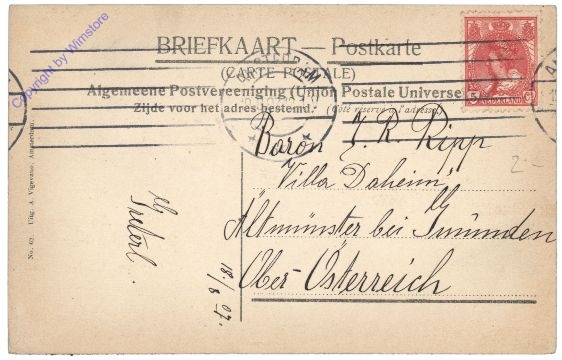 Copyright by Wimstore
BRIEFKAART — Postkarte
(CARTE POSTALE)
Algemeene Postvereeniging (Union Postale Universelle)
Zijde voor het adres bestemd. (Côté réservé à l'adresse)
NEDERLAND
Baron J. R. Ripp
"Villa Daheim"
Altmünster bei Gmünden
Ober-Österreich
18./8 07.
No. 62. Uitg. A. Vigevano, Amsterdam.
2.-